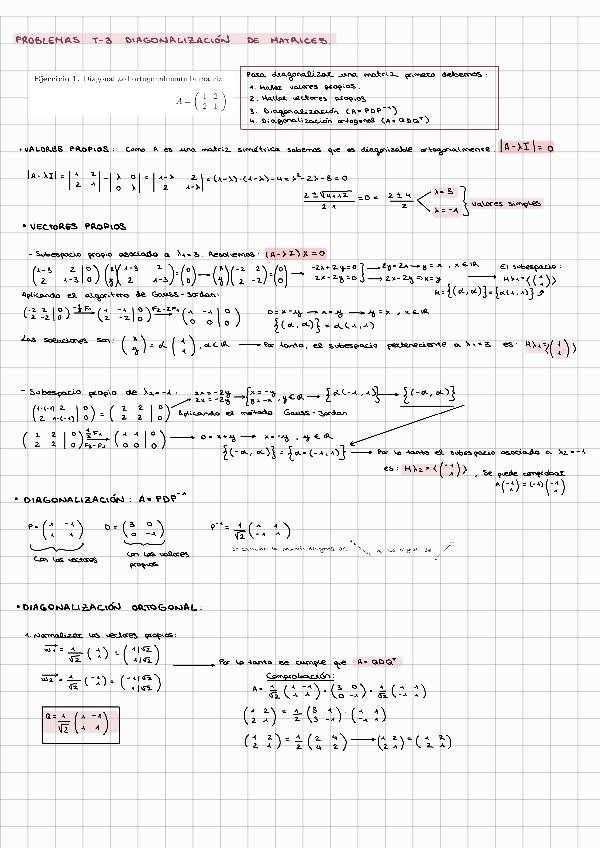 PROBLEMAS T-3 DIAGONALIZACIÓN DE MATRICES.
Ejercicio 1. Diagonalizad ortogonalmente la matriz
A = (1 2; 2 1)
Para diagonalizar una matriz primero debemos:
1. Hallar valores propios.
2. Hallar vectores propios
3. Diagonalización (A=PDP⁻¹)
4. Diagonalización ortogonal (A=QDQᵀ)
• VALORES PROPIOS: Como A es una matriz simétrica sabemos que es diagonizable ortogonalmente. |A-λI|=0
|A-λI| = |1 2; 2 1| - |λ 0; 0 λ| = |1-λ 2; 2 1-λ| = (1-λ)·(1-λ)-4 = λ²-2λ-3=0
(2±√4+12)/(2·1) =0= (2±4)/2 λ=3 λ=-1 valores simples
• VECTORES PROPIOS
- Subespacio propio asociado a λ₁=3. Resolvemos: (A-λI)X=0
(1-3 2 | 0; 2 1-3 | 0) (x; y) (1-3 2; 2 1-3) = (0; 0) → (x; y) (-2 2; 2 -2) = (0; 0) → -2x+2y=0 2x-2y=0 → 2y=2x → y=x, x∈ℝ 2x-2y → x=y
El subespacio: Hλ₁ = ⟨(1; 1)⟩
H={(α,α)}={α(1,1)}
Aplicando el algoritmo de Gauss-Jordan:
(-2 2 | 0; 2 -2 | 0) -½F₁ → (1 -1 | 0; 2 -2 | 0) F₂-2F₁ → (1 -1 | 0; 0 0 | 0) 0=x-y → x=y → y=x, x∈ℝ
{(α,α)}=α(1,1)
Las soluciones son: (x; y) = α (1; 1), α∈ℝ → Por tanto, el subespacio perteneciente a λ₁=3 es: Hλ₁=⟨(1; 1)⟩
- Subespacio propio de λ₂=-1. 2x=-2y 2x=-2y {x=-y y=-x, y∈ℝ → {α(-1,1)} → {(-α,α)}
(1-(-1) 2 | 0; 2 1-(-1) | 0) = (2 2 | 0; 2 2 | 0) Aplicando el método Gauss-Jordan
(2 2 | 0; 2 2 | 0) ½F₁ F₂-F₁ → (1 1 | 0; 0 0 | 0) → 0=x+y → x=-y, y∈ℝ
{(-α,α)}={α·(-1,1)} → Por lo tanto el subespacio asociado a λ₂=-1
es: Hλ₂=⟨(-1; 1)⟩, Se puede comprobar
A(-1; 1)=(-1)(-1; 1)
• DIAGONALIZACIÓN: A=PDP⁻¹
P=(1 -1; 1 1) D=(3 0; 0 -1) P⁻¹=1/√2 (1 1; -1 1)
Con los vectores Con los valores propios
• DIAGONALIZACIÓN ORTOGONAL:
1. Normalizar los vectores propios:
w₁=1/√2 (1; 1) = (1/√2; 1/√2)
w₂=1/√2 (-1; 1) = (-1/√2; 1/√2)
Q=1/√2 (1 -1; 1 1)
Por lo tanto se cumple que A=QDQᵀ
Comprobación:
A=1/√2 (1 -1; 1 1)·(3 0; 0 -1)·1/√2 (1 1; -1 1)
(1 2; 2 1) = 1/2 (3 1; 3 -1)·(1 1; -1 1)
(1 2; 2 1) = 1/2 (2 4; 4 2) → (1 2; 2 1)=(1 2; 2 1)